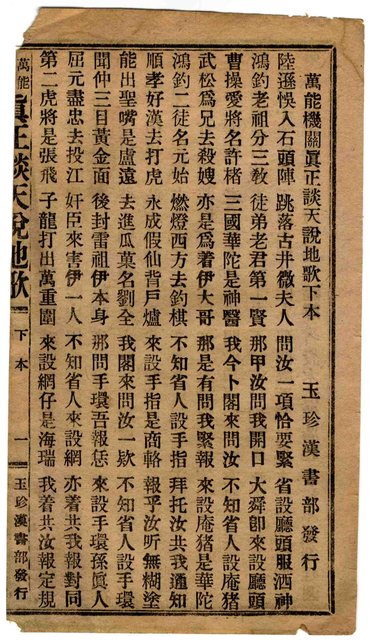 萬能機關眞正談天說地歌下本　玉珍漢書部發行
陸遜悞入石頭陣　跳落古井微夫人　問汝一項恰要緊　省設廳頭服洒神
鴻鈞老祖分三教　徒弟老君第一賢　那甲汝問我開口　大舜卽來設廳頭
曹操愛將名許楮　三國華陀是神醫　我今卜閣來問汝　不知省人設庵猪
武松爲兄去殺嫂　亦是爲着伊大哥　那是有問我緊報　來設庵猪是華陀
鴻鈞二徒名元始　燃燈西方去釣棋　不知省人設手指　拜托汝共我通知
順孝好漢去打虎　永成假仙背戸爐　來設手指是商輅　報乎汝听無糊塗
能出聖嘴是盧遠　去進瓜菓名劉全　我閣來問汝一欵　不知省人設手環
聞仲三目黃金面　後封雷祖伊本身　那問手環吾報恁　來設手環孫眞人
屈元盡忠去投江　奸臣來害伊一人　不知省人來設網　亦着共我報對同
第二虎將是張飛　子龍打出萬重圍　來設網仔是海瑞　我着共汝報定規
萬能　眞正談天說地歌　下本　一　玉珍漢書部發行